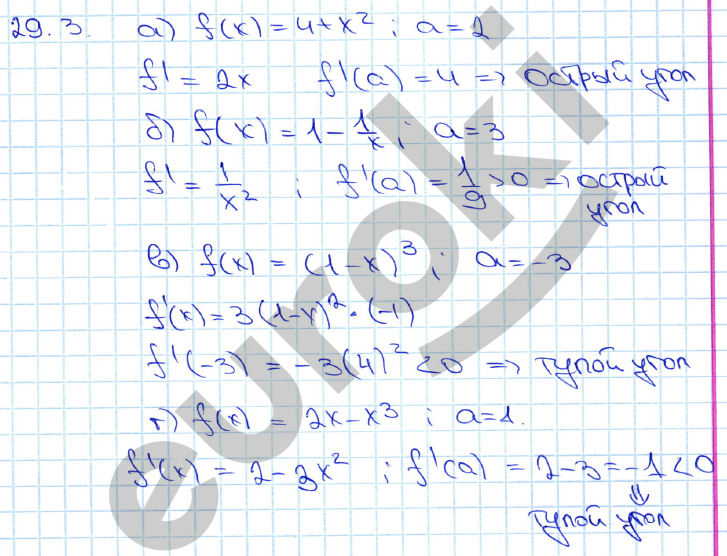 29.3. а) f(x) = 4+x² ; a=2
f' = 2x f'(a) = 4 => острый угол
б) f(x) = 1 - 1/x ; a=3
f' = 1/x² ; f'(a) = 1/9 >0 => острый
угол
в) f(x) = (1-x)³ ; a=-3
f'(x) = 3(1-x)² · (-1)
f'(-3) = -3(4)² <0 => тупой угол
г) f(x) = 2x-x³ ; a=1.
f'(x) = 2-3x² ; f'(a) = 2-3=-1<0
⇓
тупой угол
euroki